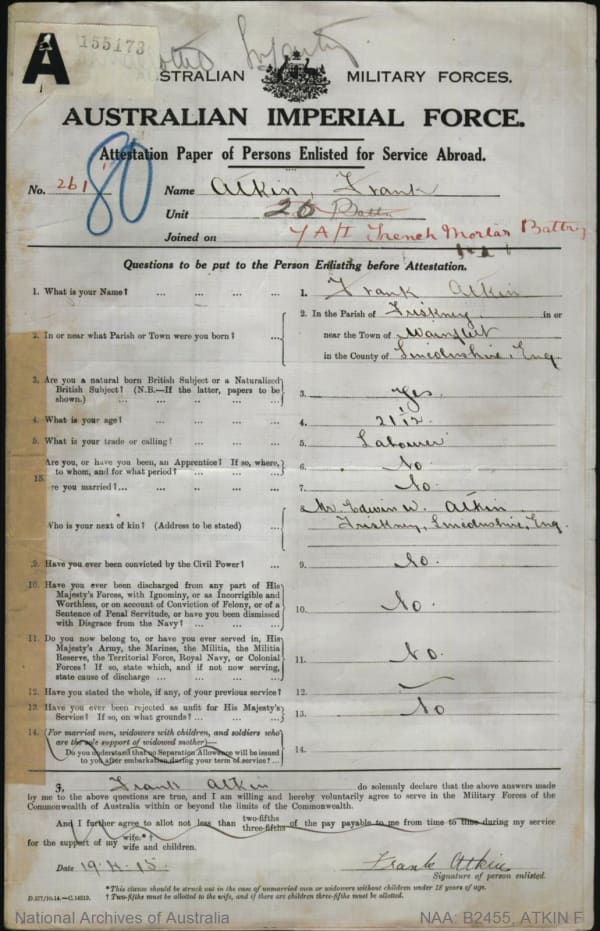 A
155173
Infantry
AUSTRALIAN MILITARY FORCES.
AUSTRALIAN IMPERIAL FORCE.
Attestation Paper of Persons Enlisted for Service Abroad.
No. 261 80 Name Atkin, Frank
Unit 26 Battn
Joined on 7 A/I Trench Mortar Battry
Questions to be put to the Person Enlisting before Attestation.
1. What is your Name? ... ... ... ... 1. Frank Atkin
2. In or near what Parish or Town were you born? ... 2. In the Parish of Friskney in or
near the Town of Wainfleet
in the County of Lincolnshire, Eng.
3. Are you a natural born British Subject or a Naturalized
British Subject? (N.B.—If the latter, papers to be
shown.) ... ... ... ... 3. Yes.
4. What is your age? ... ... ... ... 4. 21 1/12
5. What is your trade or calling? ... ... ... 5. Labourer
6. Are you, or have you been, an Apprentice? If so, where,
to whom, and for what period? ... ... ... 6. No
15.
re you married?... ... ... ... ... 7. No.
Who is your next of kin? (Address to be stated) ... Mr. Edwin W. Atkin.
Friskney, Lincolnshire, Eng.
9. Have you ever been convicted by the Civil Power? ... 9. No.
10. Have you ever been discharged from any part of His
Majesty's Forces, with Ignominy, or as Incorrigible and
Worthless, or on account of Conviction of Felony, or of a
Sentence of Penal Servitude, or have you been dismissed
with Disgrace from the Navy? ... ... ... 10. No.
11. Do you now belong to, or have you ever served in, His
Majesty's Army, the Marines, the Militia, the Militia
Reserve, the Territorial Force, Royal Navy, or Colonial
Forces? If so, state which, and if not now serving,
state cause of discharge ... ... ... ... 11. No.
12. Have you stated the whole, if any, of your previous service? 12.
13. Have you ever been rejected as unfit for His Majesty's
Service? If so, on what grounds? ... ... ... 13. No
14. (For married men, widowers with children, and soldiers who
are the sole support of widowed mother)—
Do you understand that no Separation Allowance will be issued
to you after embarkation during your term of service? ... 14.
I, Frank Atkin do solemnly declare that the above answers made
by me to the above questions are true, and I am willing and hereby voluntarily agree to serve in the Military Forces of the
Commonwealth of Australia within or beyond the limits of the Commonwealth.
And I further agree to allot not less than two-fifths three-fifths of the pay payable to me from time to time during my service
for the support of my wife.*† wife and children.
Date 19.4.15 Frank Atkin
Signature of person enlisted.
*This clause should be struck out in the case of unmarried men or widowers without children under 18 years of age.
D.577/10.14.—C.14512. † Two-fifths must be allotted to the wife, and if there are children three-fifths must be allotted.
National Archives of Australia NAA: B2455, ATKIN F